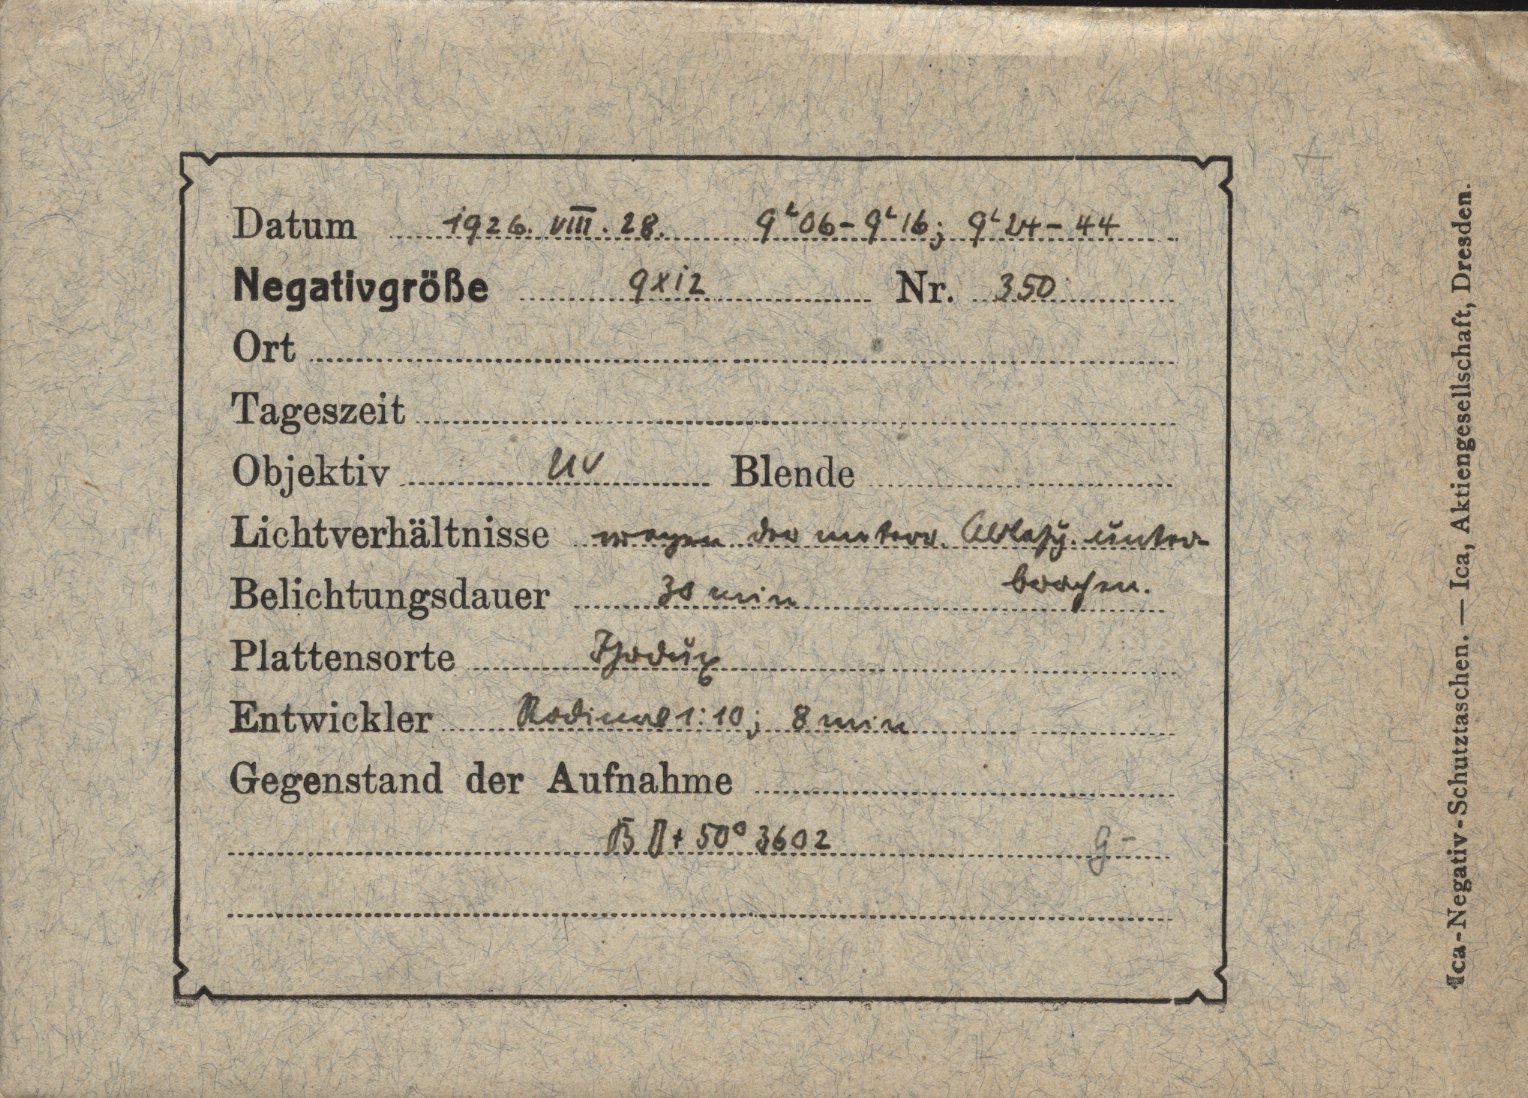 Datum 1926. VIII. 28. 9ʰ06-9ʰ16; 9ʰ24-44
Negativgröße 9x12 Nr. 350
Ort
Tageszeit
Objektiv UV Blende
Lichtverhältnisse wegen der meteor. Ablesg. unter-
brochen.
Belichtungsdauer 30 min
Plattensorte
Entwickler Rodinal 1:10; 8 min
Gegenstand der Aufnahme
BD+50° 3602 g-
Ica-Negativ-Schutztaschen. — Ica, Aktiengesellschaft, Dresden.